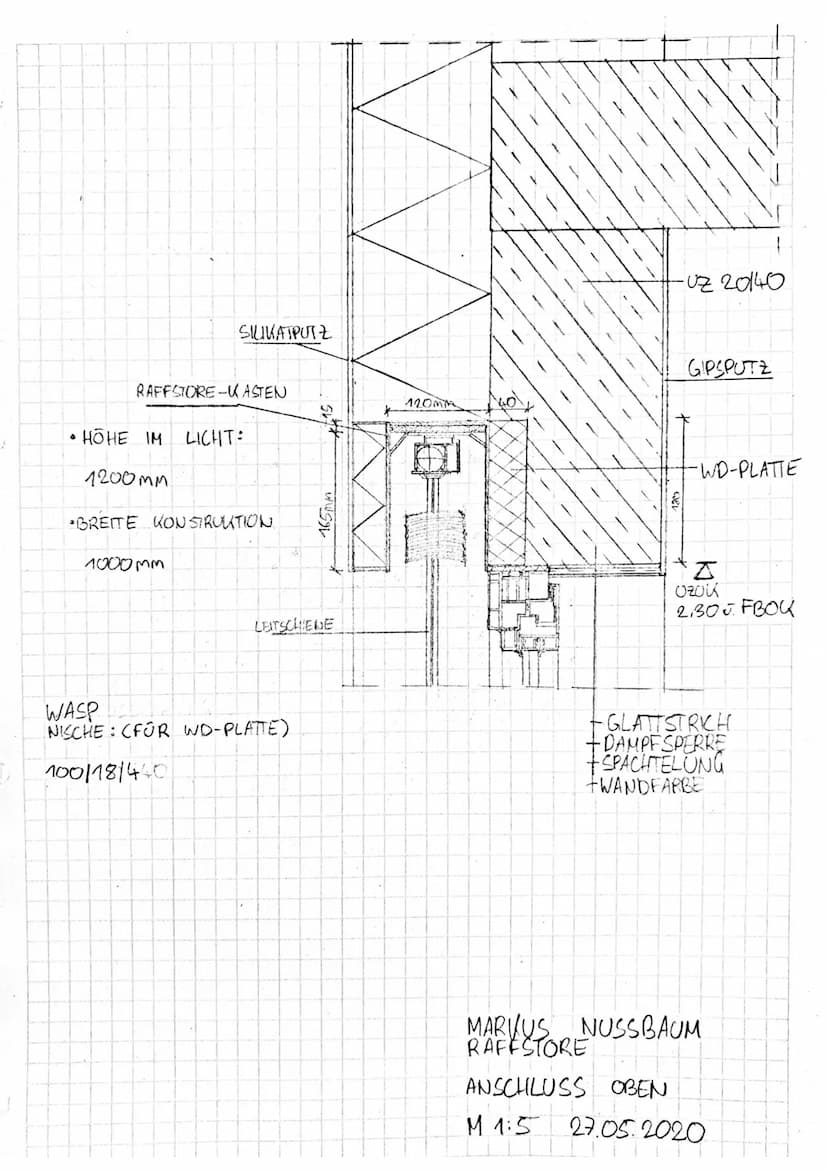 UZ 20/40
SILIKATPUTZ
GIPSPUTZ
RAFFSTORE-KASTEN
120mm
40
15
• HÖHE IM LICHT:
1200mm
WD-PLATTE
165mm
180
• BREITE KONSTRUKTION
1000mm
UZUK
2,30 ü. FBOK
LEITSCHIENE
WASP
NISCHE: (FÜR WD-PLATTE)
100/18/440
GLATTSTRICH
DAMPFSPERRE
SPACHTELUNG
WANDFARBE
MARKUS NUSSBAUM
RAFFSTORE
ANSCHLUSS OBEN
M 1:5 27.05.2020